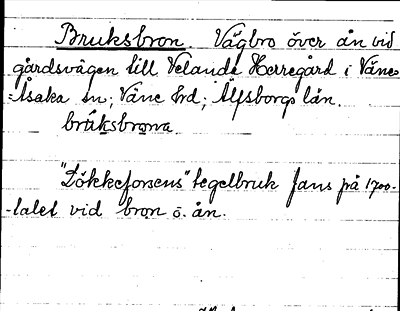 Bruksbron Vägbro över ån vid
gårdsvägen till Velande Herregård i Väne-
-Åsaka sn; Väne hrd; Älfsborgs län.
bruksbrona
"Dökkeforsens" tegelbruk fans på 1700-
-talet vid bron ö. ån.